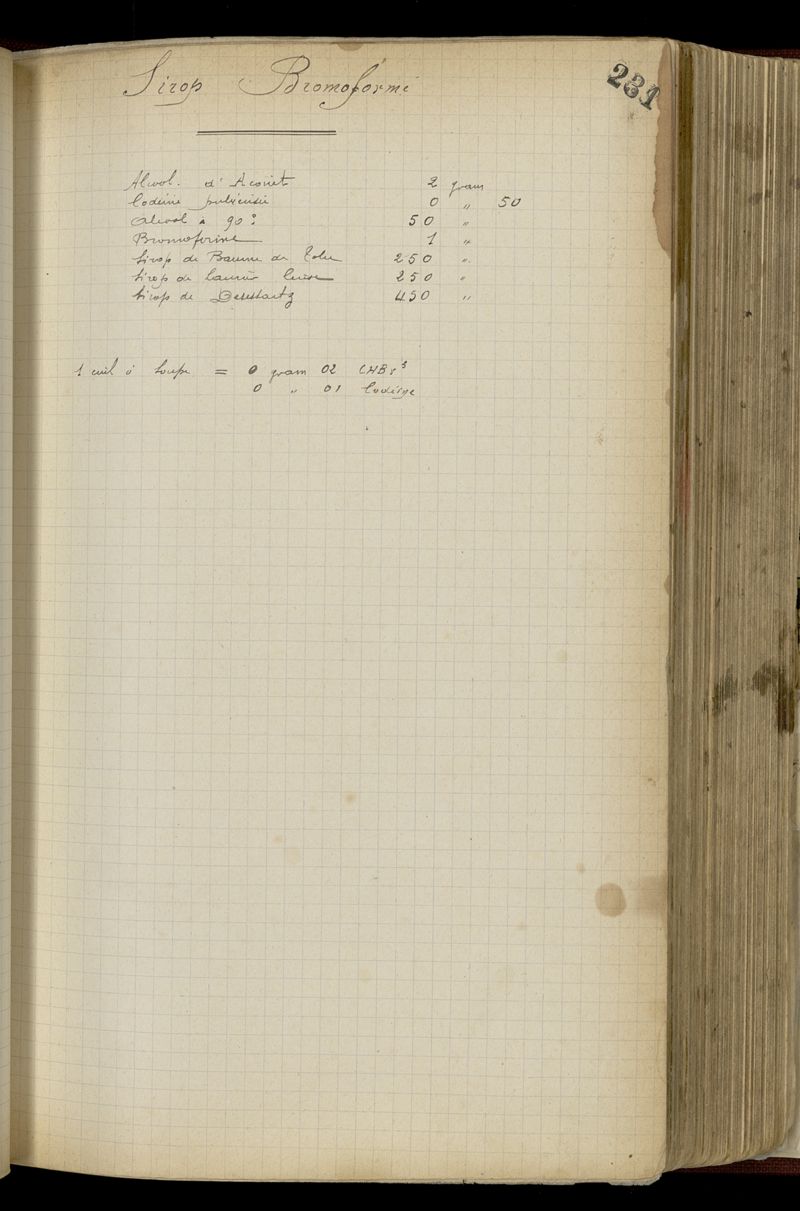 231
Sirop Bromoformé
Alcool. d'Aconit 2 gram
Codéine pulvérisée 0 " 50
Alcool à 90° 50 "
Bromoforme 1 "
Sirop de Baume de Tolu 250 "
Sirop de Laurier Cerise 250 "
Sirop de Desessartz 450 "
1 cuil à Soupe = 0 gram 02 CHBr³
0 " 01 Codéine